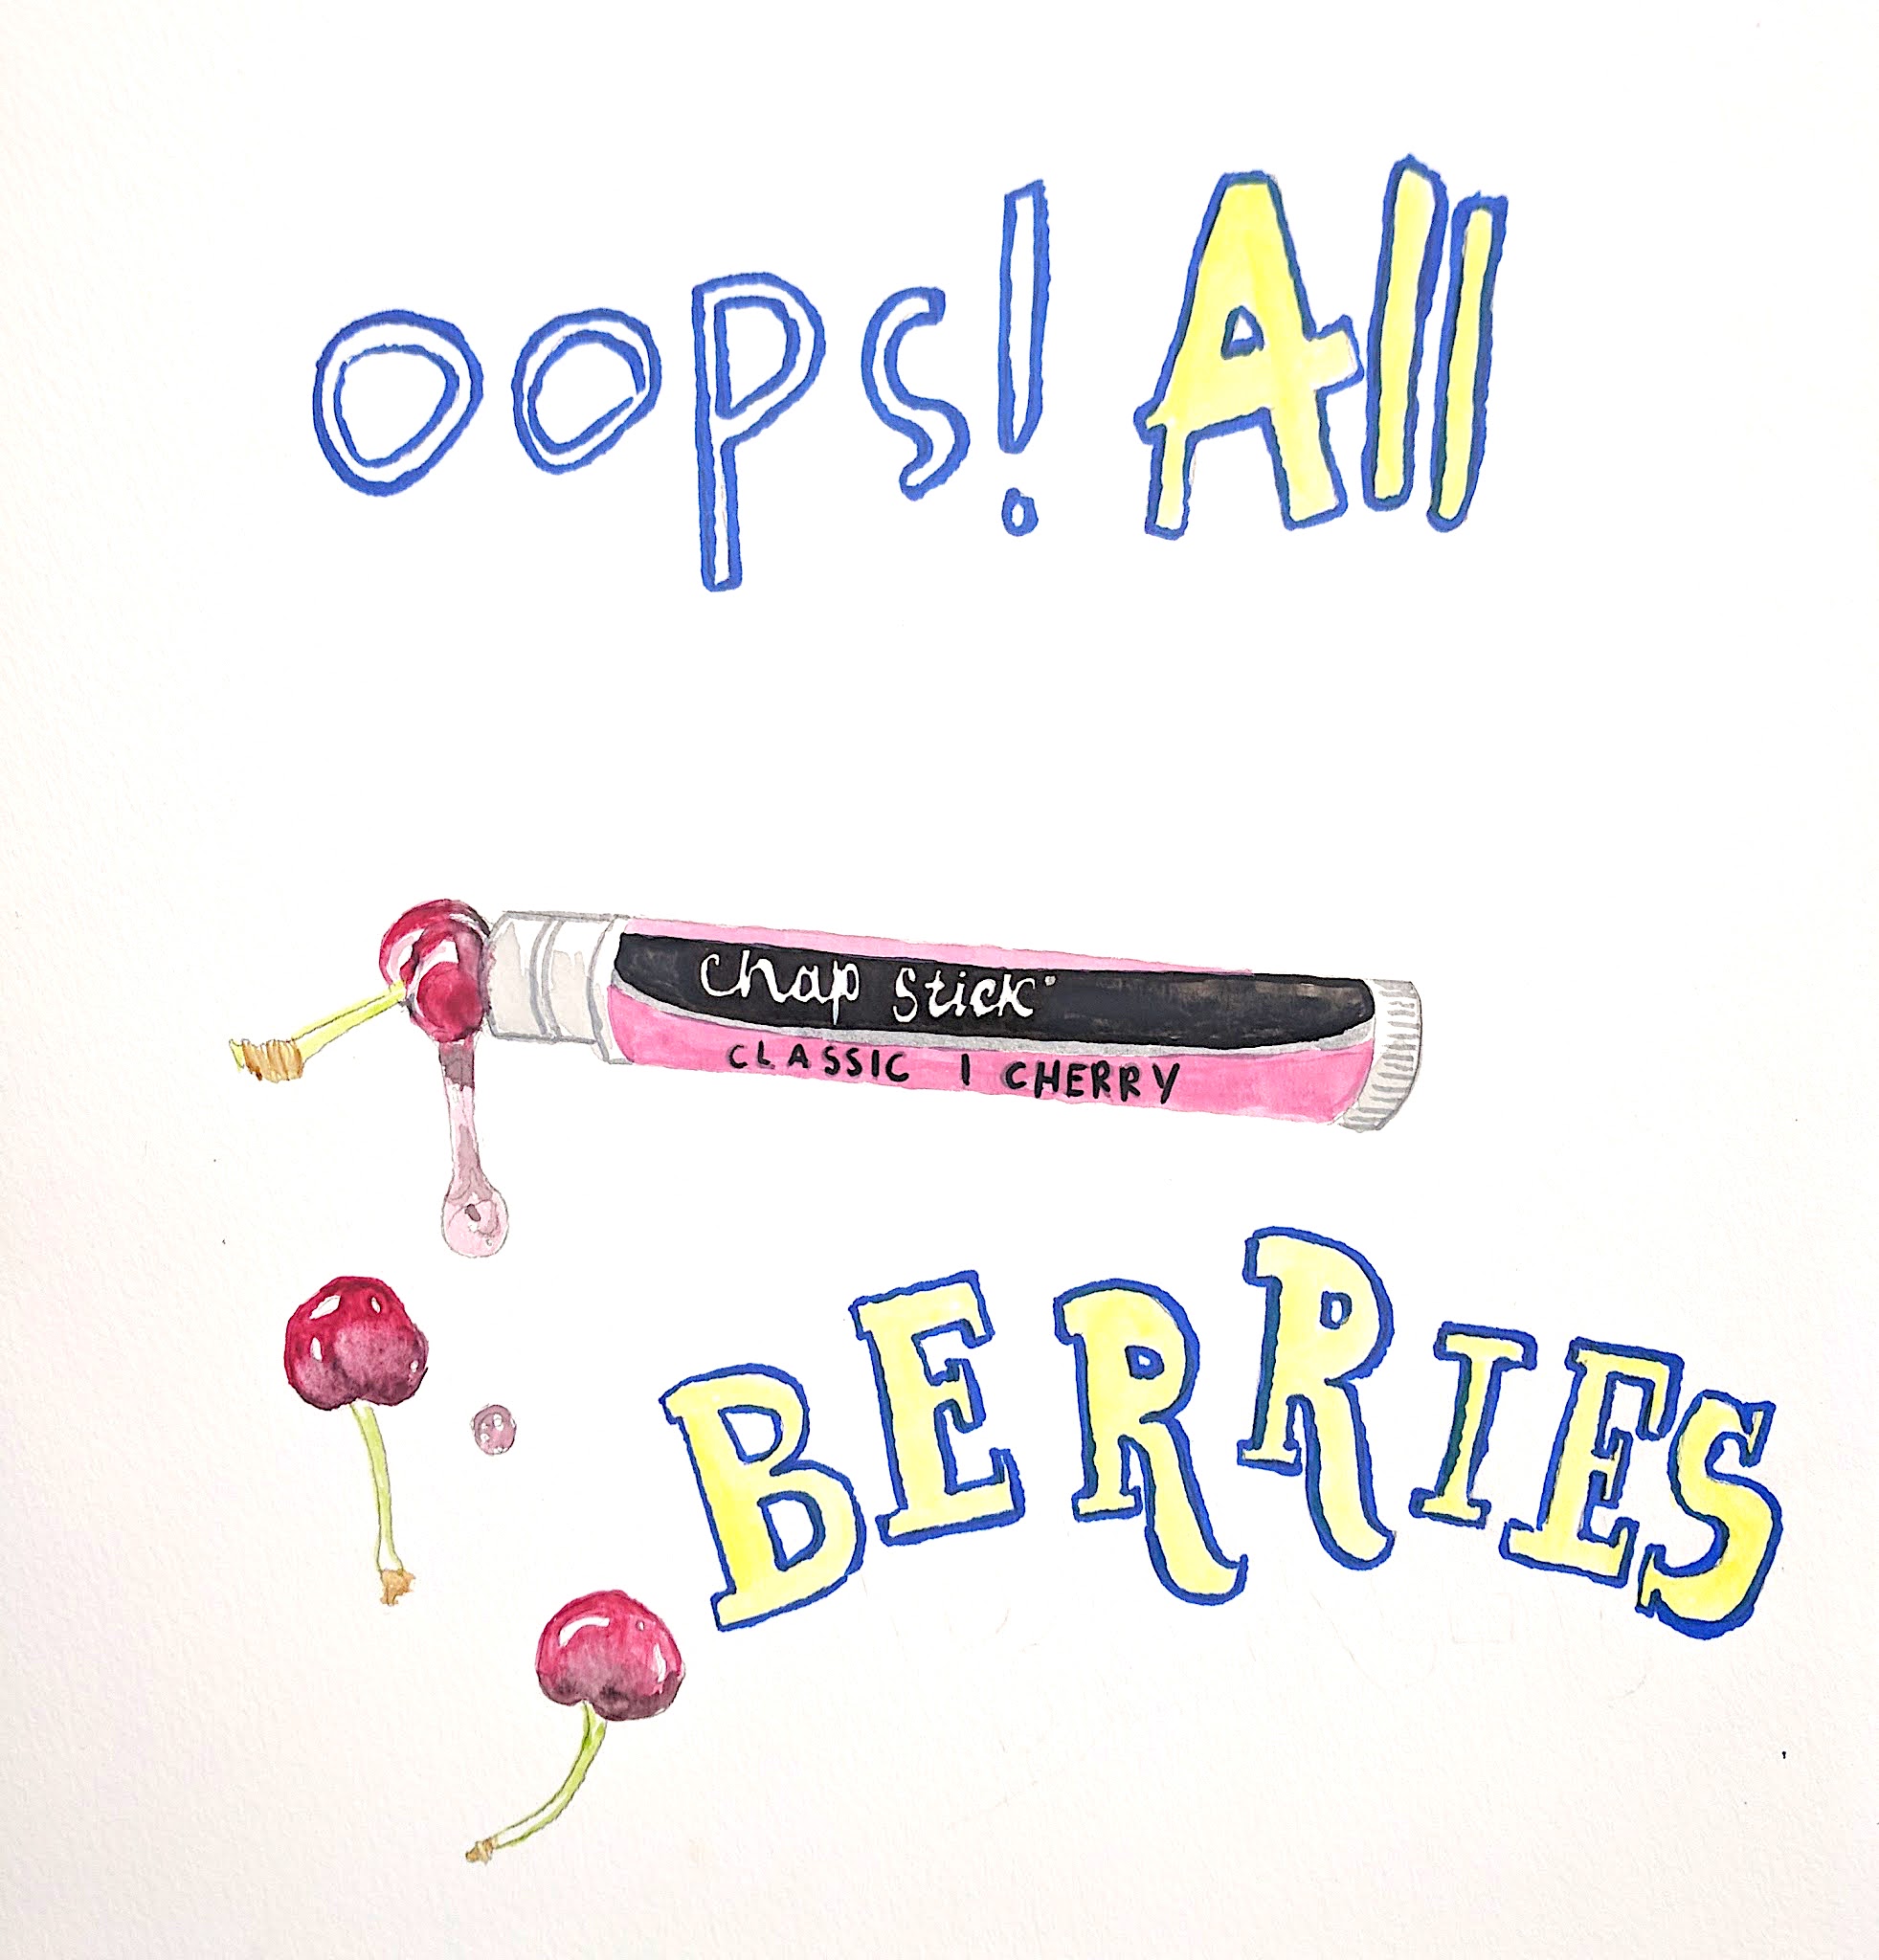 oops! All
chap stick
CLASSIC | CHERRY
BERRIES